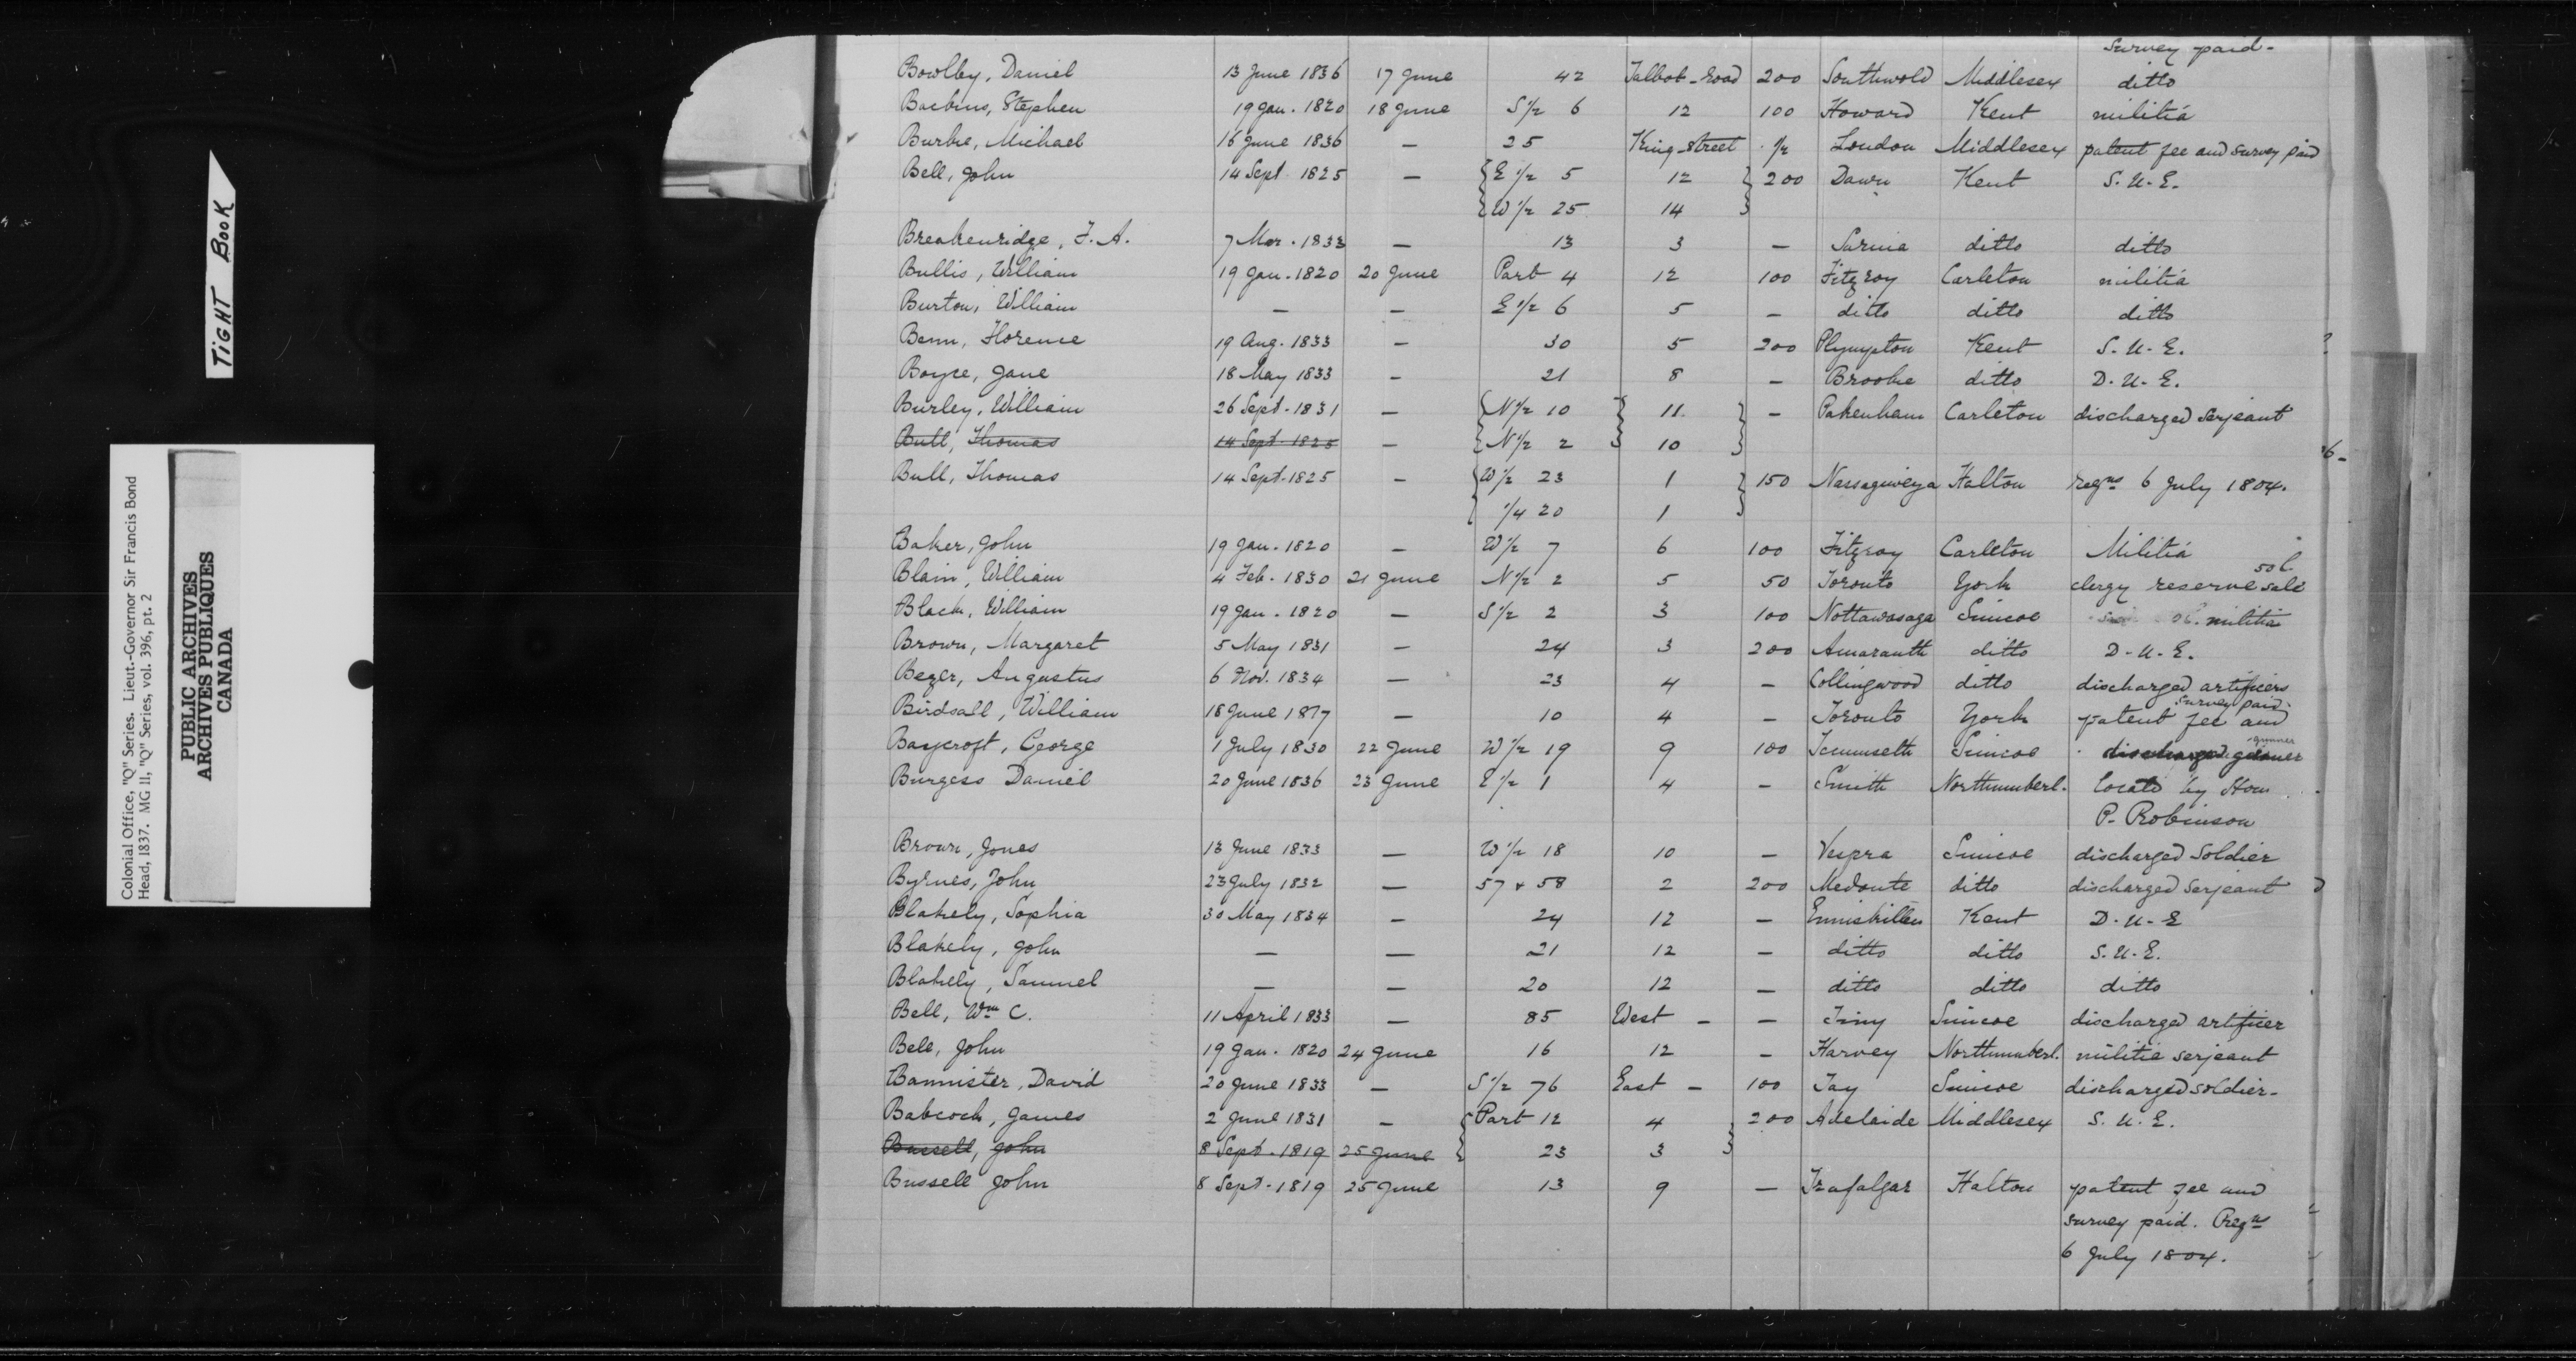 survey paid -
Bowlby, Daniel 13 June 1836 17 June 42 Talbot-road 200 Southwold Middlesex ditto
Stephen 19 Jan. 1820 18 June S ½ 6 12 100 Howard Kent militia
Burke, Michael 16 June 1836 — 25 King-street ½ London Middlesex patent fee and survey paid
Bell, John 14 Sept 1825 — { E ½ 5 12 } 200 Dawn Kent S. U. E.
{ W ½ 25 14 }
Breakenridge, F. A. 7 Mar. 1833 — 13 3 — Sarnia ditto ditto
Bullis, William 19 Jan. 1820 20 June Part 4 12 100 Fitzroy Carleton militia
Burton, William — — E ½ 6 5 — ditto ditto ditto
Benn, Florence 19 Aug. 1833 — 30 5 200 Plympton Kent S. U. E.
Boyce, Jane 18 May 1833 — 21 8 — Brooke ditto D. U. E.
Burley, William 26 Sept. 1831 — { N ½ 10 } 11 } — Pakenham Carleton discharged serjeant
Bull, Thomas 14 Sept 1825 — { N ½ 2 } 10 }
Bull, Thomas 14 Sept. 1825 — { W ½ 23 1 } 150 Nassagiweya Halton regns 6 July 1804.
{ ¼ 20 1 }
Baker, John 19 Jan. 1820 — W ½ 7 6 100 Fitzroy Carleton Militia
Blain, William 4 Feb. 1830 21 June N ½ 2 5 50 Toronto York clergy reserve sale
Black, William 19 Jan. 1820 — S ½ 2 3 100 Nottawasaga Simcoe militia
Brown, Margaret 5 May 1831 — 24 3 200 Amaranth ditto D. U. E.
Bezer, Augustus 6 Nov. 1834 — 23 4 — Collingwood ditto discharged artificers
survey paid
Birdsall, William 18 June 1817 — 10 4 — Toronto York patent fee and
gunner
Baycroft, George 1 July 1830 22 June W ½ 19 9 100 Tecumseth Simcoe discharged gunner
Burgess Daniel 20 June 1836 23 June E ½ 1 4 — Smith Northumberl. locatd by Hon
P. Robinson
Brown, Jones 13 June 1833 — W ½ 18 10 — Vespra Simcoe discharged soldier
Byrnes, John 23 July 1832 — 57 & 58 2 200 Medonte ditto discharged serjeant
Blakely, Sophia 30 May 1834 — 24 12 — Enniskillen Kent D. U. E
Blakely, John — — 21 12 — ditto ditto S. U. E.
Blakely, Samuel — — 20 12 — ditto ditto ditto
Bell, Wm C. 11 April 1833 — 85 West — — Tiny Simcoe discharged artificer
Bell, John 19 Jan. 1820 24 June 16 12 — Harvey Northumberl. militia serjeant
Bannister, David 20 June 1833 — S ½ 76 East — 100 Tay Simcoe discharged soldier.
Babcock, James 2 June 1831 — { Part 12 4 } 200 Adelaide Middlesex S. U. E.
Bussell, John 8 Sept. 1819 25 June { 23 3 }
Bussell John 8 Sept. 1819 25 June 13 9 — Trafalgar Halton patent fee and
survey paid. Regns
6 July 1804.
TIGHT BOOK
Colonial Office, "Q" Series. Lieut.-Governor Sir Francis Bond
Head, 1837. MG 11, "Q" Series, vol. 396, pt. 2
PUBLIC ARCHIVES
ARCHIVES PUBLIQUES
CANADA